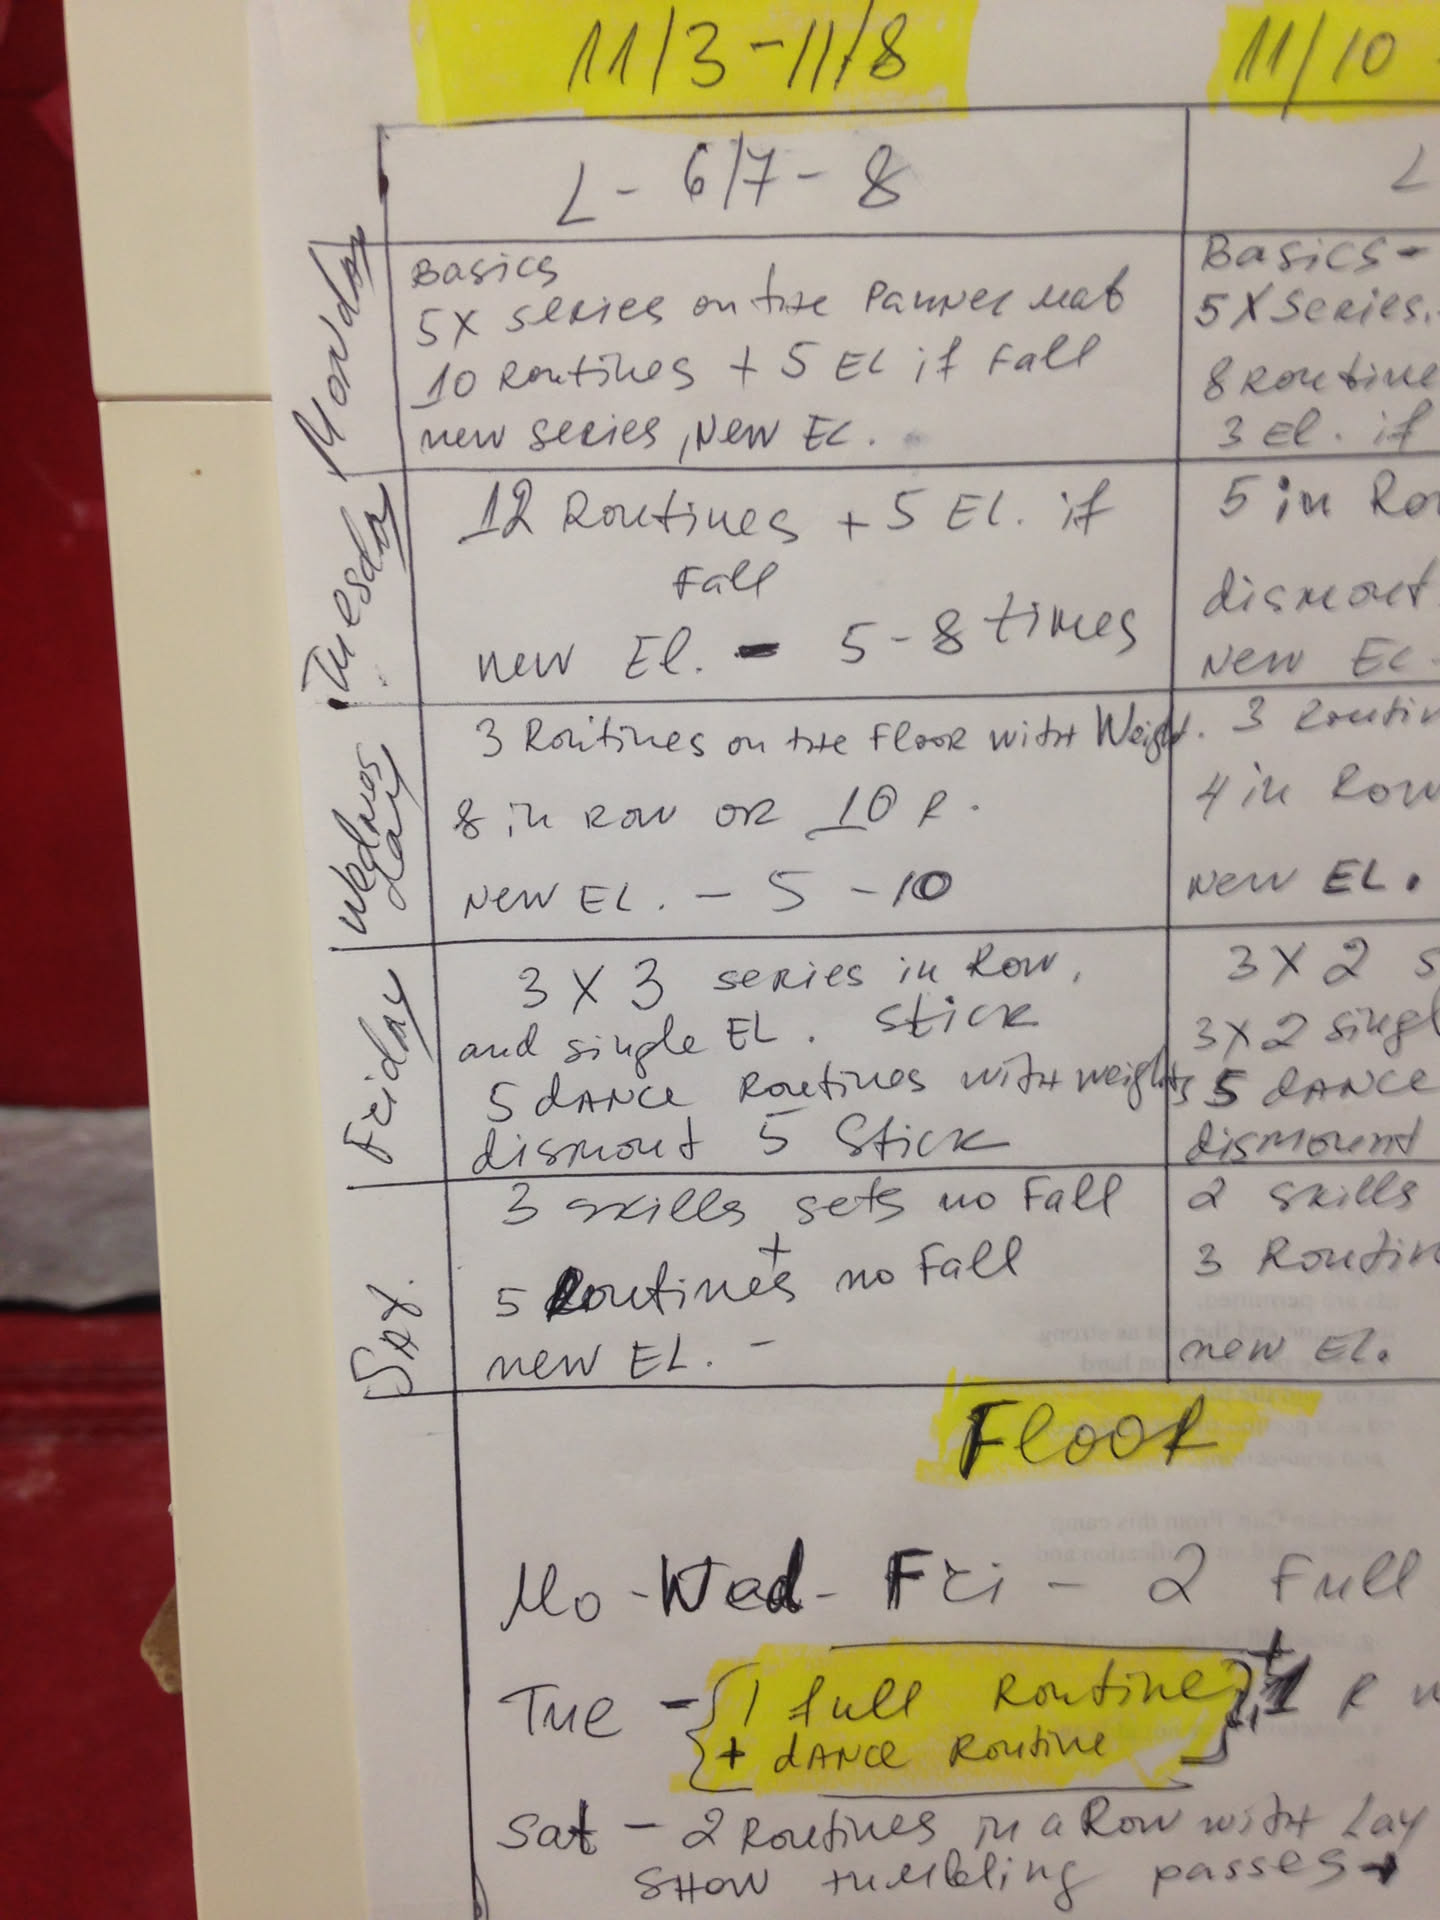 11/3 - 11/8
11/10 -
L - 6/7 - 8
L
Monday
Basics
5X series on the Pannel mat
10 Routines + 5 EL if Fall
new series, New EL.
Basics -
5X Series.
8 Routine
3 El. if
Tuesday
12 Routines + 5 EL. if
Fall
new El. - 5 - 8 times
5 in Ro
dismout
New EL
Wednesday
3 Routines on the Floor with Weight.
8 in Row OR 10 R.
New EL. - 5 - 10
3 Routin
4 in Row
New EL.
Friday
3 X 3 series in Row,
and single EL. Stick
5 dANCE Routines with weights
dismout 5 Stick
3 X 2 s
3X2 singl
5 dANCE
dismount
SAt.
3 skills sets no Fall
+
5 Routines no Fall
new EL. -
2 skills
3 Routin
new EL.
FlooR
Mo - Wed - Fri - 2 Full
Tue - { 1 full Routine } + 1 R
+ dANCE Routine
Sat - 2 Routines in a Row with Lay
SHOW tumbling passes